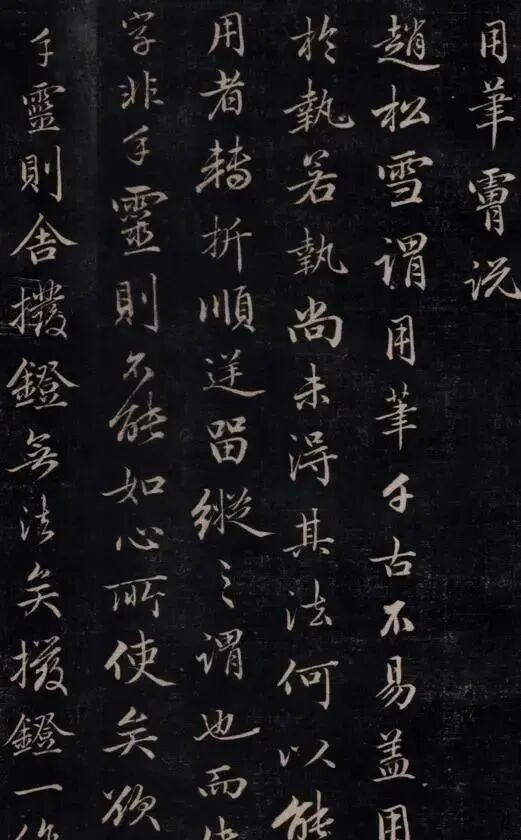 用筆膚说
趙松雪謂用筆千古不易蓋用
於執若執尚未得其法何以能
用者轉折順逆留縱之謂也而
字非手靈則不能如心所使矣欲
手靈則舍撥鐙無法矣撥鐙一